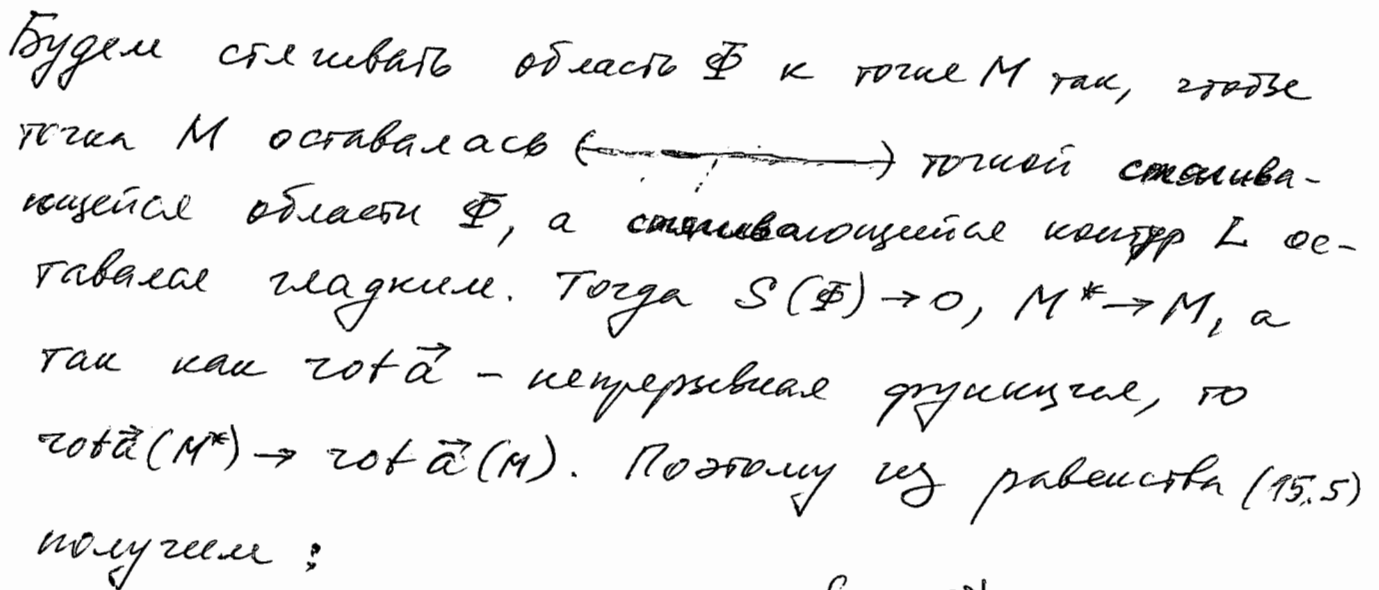 Будем стягивать область Ф к точке M так, чтобы
точка M оставалась ( ) точкой стягива-
ющейся области Ф, а стягивающийся контур L ос-
тавался гладким. Тогда S(Ф) → 0, M* → M, а
так как rot a⃗ – непрерывная функция, то
rot a⃗(M*) → rot a⃗(M). Поэтому из равенства (15.5)
получим :